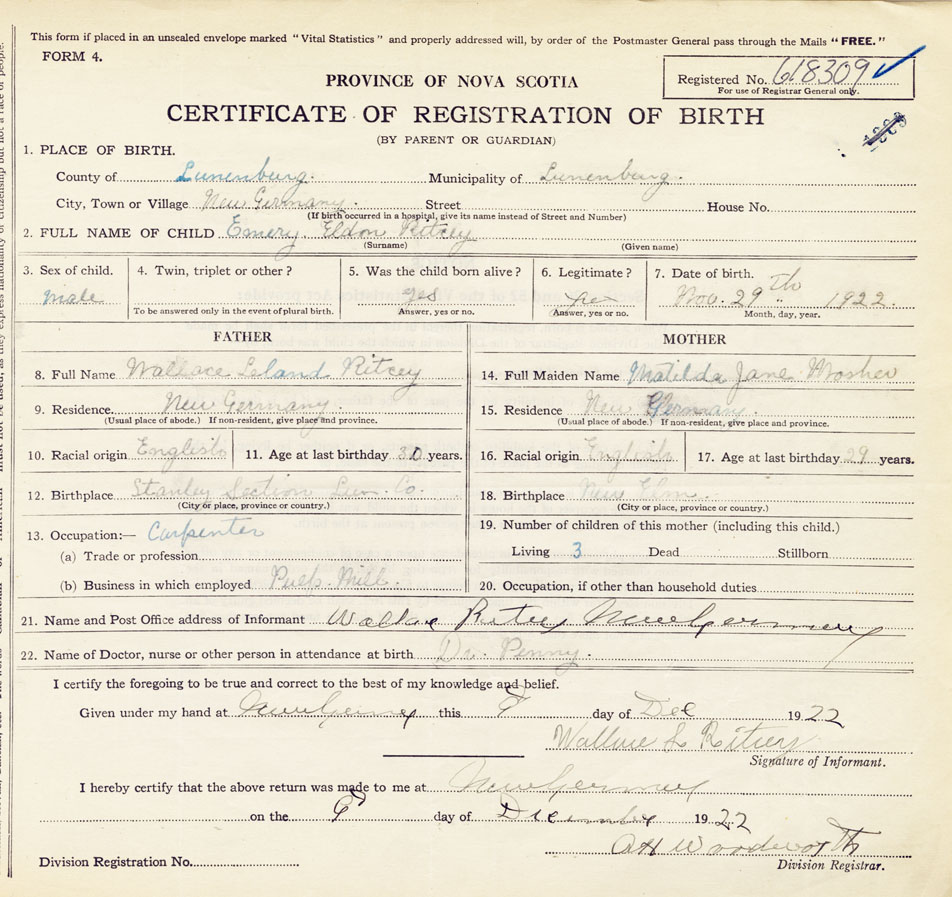 This form if placed in an unsealed envelope marked "Vital Statistics" and properly addressed will, by order of the Postmaster General pass through the Mails "FREE."
FORM 4.
Registered No. 618309
For use of Registrar General only.
PROVINCE OF NOVA SCOTIA
CERTIFICATE OF REGISTRATION OF BIRTH
(BY PARENT OR GUARDIAN)
1. PLACE OF BIRTH.
County of Lunenburg. Municipality of Lunenburg.
City, Town or Village New Germany. Street House No.
(If birth occurred in a hospital, give its name instead of Street and Number)
2. FULL NAME OF CHILD Emery Eldon Ritcey
(Surname) (Given name)
3. Sex of child. 4. Twin, triplet or other? 5. Was the child born alive? 6. Legitimate? 7. Date of birth.
male yes yes Nov. 29th 1922
To be answered only in the event of plural birth. Answer, yes or no. Answer, yes or no. Month, day, year.
FATHER MOTHER
8. Full Name Wallace Leland Ritcey 14. Full Maiden Name Matilda Jane Mosher
9. Residence. New Germany. 15. Residence New Germany.
(Usual place of abode.) If non-resident, give place and province. (Usual place of abode.) If non-resident, give place and province.
10. Racial origin English 11. Age at last birthday 30 years. 16. Racial origin English 17. Age at last birthday 29 years.
12. Birthplace Stanley Section Lun. Co. 18. Birthplace New Elm.
(City or place, province or country.) (City or place, province or country.)
13. Occupation:— Carpenter 19. Number of children of this mother (including this child.)
(a) Trade or profession Living 3 Dead Stillborn
(b) Business in which employed Pulp Mill. 20. Occupation, if other than household duties
21. Name and Post Office address of Informant Wallace Ritcey New Germany
22. Name of Doctor, nurse or other person in attendance at birth Dr. Penny.
I certify the foregoing to be true and correct to the best of my knowledge and belief.
Given under my hand at New Germany this 9 day of Dec 1922
Wallace L Ritcey
Signature of Informant.
I hereby certify that the above return was made to me at New Germany
on the 9 day of December 1922
AH Woodworth
Division Registration No. Division Registrar.